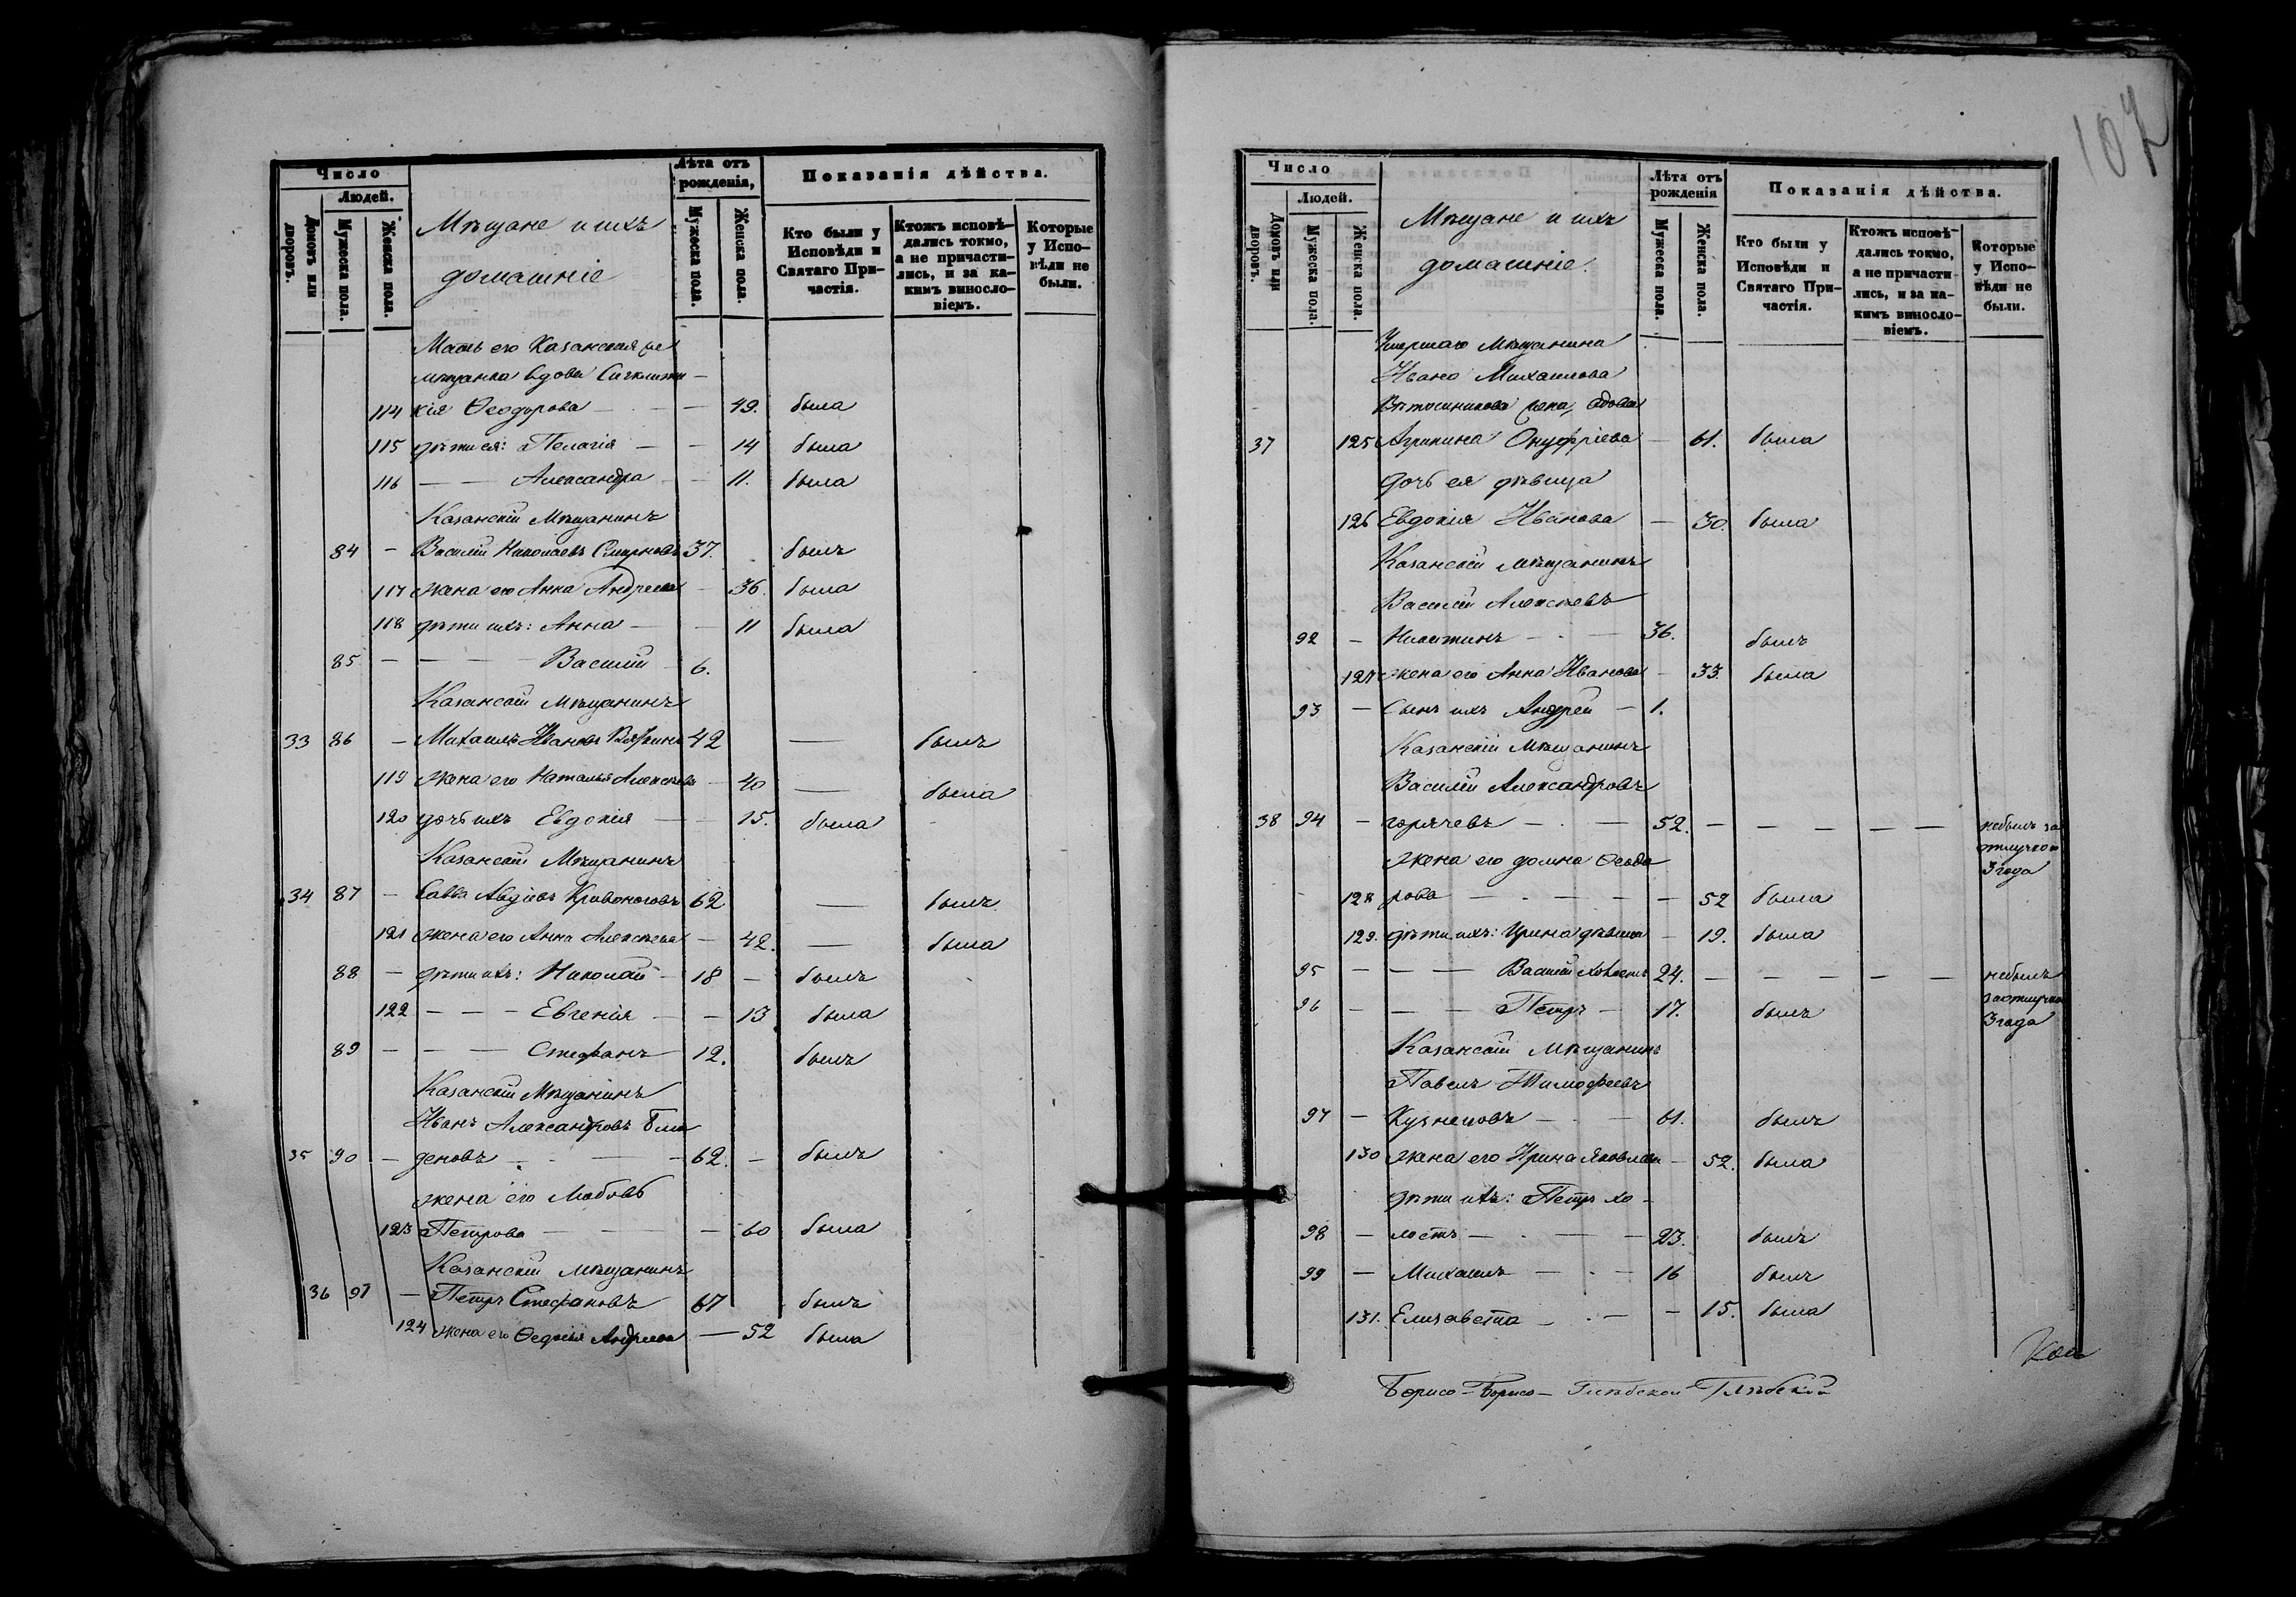 Число
Людей.
Домовъ или дворовъ.
Мужеска пола.
Женска пола.
Мѣщане и ихъ
домашніе
Лѣта отъ рожденія,
Мужеска пола.
Женска пола.
Показанія дѣйства.
Кто были у Исповѣди и Святаго Причастія.
Ктожъ исповѣдались токмо, а не причастились, и за какимъ винословіемъ.
Которые у Исповѣди не были.
Мать его Казанская
мѣщанка вдова
114 кія Ѳеодорова — — 49. была
115 дѣти ея: Пелагія — — 14 была
116 — — Александра — 11. была
Казанскій Мѣщанинъ
84 — Василій Николаевъ Смирновъ 37. былъ
117 жена его Анна Андреева — 36. была
118 дѣти ихъ: Анна — — 11 была
85 — — — Василій 6.
Казанскій мѣщанинъ
33 86 — Михаилъ Ивановъ 42 — былъ
119 жена его Наталья Алексѣева — 40 — была
120 дочь ихъ Евдокія — — 15. была
Казанскій Мѣщанинъ
34 87 — Савва Авдіевъ Кривоноговъ 62 — былъ
121 жена его Анна Алексѣева — 42. — была
88 — дѣти ихъ: Николай — 18 — былъ
122 — — — Евгенія — — 13 была
89 — — — Стефанъ 12. былъ
Казанскій Мѣщанинъ
Иванъ Александровъ Бли
35 90 — деновъ — — 62. — былъ
жена его Любовь
123 Петрова — — — 60 была
Казанскій мѣщанинъ
36 91 — Петръ Стефановъ 67 былъ
124 жена его Ѳедосья Андреева — 52 была
107
Число
Людей.
Домовъ или дворовъ.
Мужеска пола.
Женска пола.
Мѣщане и ихъ
домашніе.
Лѣта отъ рожденія
Мужеска пола.
Женска пола.
Показанія дѣйства.
Кто были у Исповѣди и Святаго Причастія.
Ктожъ исповѣдались токмо, а не причастились, и за какимъ винословіемъ.
Которые у Исповѣди не были.
Умершаго Мѣщанина
Ивана Михаилова
Вѣтошникова жена, вдова
37 125 Агрипина Онуфріева — 61. была
дочь ея дѣвица
126 Евдокія Иванова — 30. была
Казанскій мѣщанинъ
Василій Алексѣевъ
92 — Никитинъ — — 36. былъ
127 жена его Анна Иванова — 33. была
93 — Сынъ ихъ Андрей — 1.
Казанскій Мѣщанинъ
Василій Александровъ
38 94 — горячевъ — — 52. — — — — — небылъ за
отлучкой
3 года
жена его домна Ѳеодо
128 рова — — — — 52 была
129. дѣти ихъ: Ирина дѣвица — 19. была
95 — — — Василій холостъ 24. — — — — — небылъ
за отлучкой
3 года
96 — — — Петръ — 17. былъ
Казанскій Мѣщанинъ
Павелъ Тимофеевъ
97 — Кузнецовъ — — 61. былъ
130 жена его Ирина Яковлева — 52. была
дѣти ихъ: Петръ хо-
98 — лостъ — — — 23. былъ
99 — Михаилъ — — 16 былъ
131. Елизавета — — — 15. была
Борисо-Борисо-Глѣбской Глѣбской